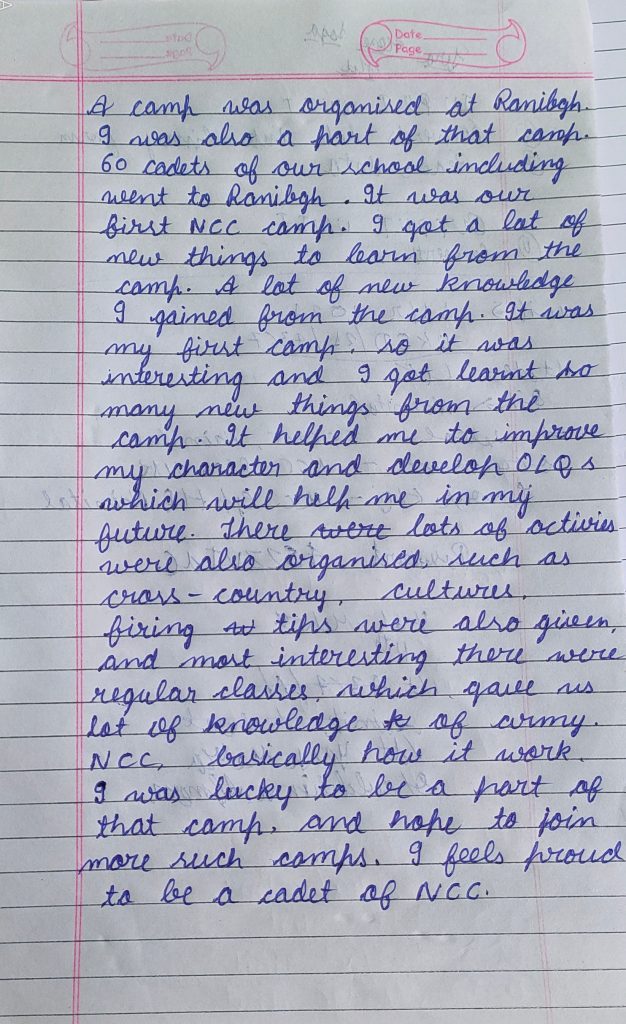 Date
Page
A camp was organised at Ranibgh.
I was also a part of that camp.
60 cadets of our school including
went to Ranibgh. It was our
first NCC camp. I got a lot of
new things to learn from the
camp. A lot of new knowledge
I gained from the camp. It was
my first camp, so it was
interesting and I got learnt so
many new things from the
camp. It helped me to improve
my character and develop OLQs
which will help me in my
future. There were lots of activies
were also organised such as
cross-country, cultures,
firing tips were also given,
and most interesting there were
regular classes, which gave us
lot of knowledge of army.
NCC, basically how it work.
I was lucky to be a part of
that camp, and hope to join
more such camps. I feels proud
to be a cadet of NCC.